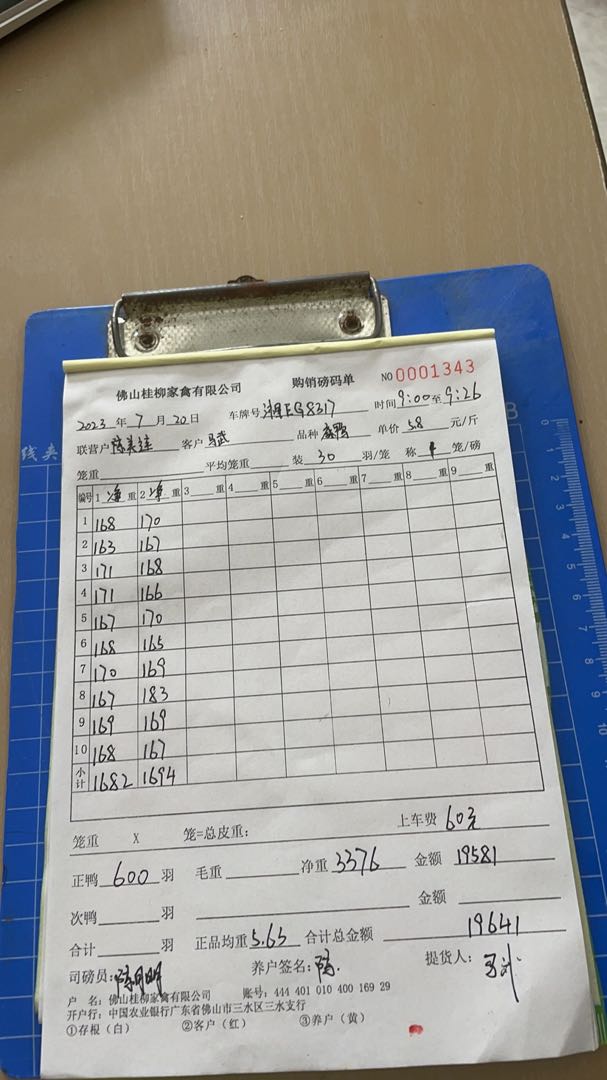 佛山桂柳家禽有限公司 购销磅码单 NO 0001343
2023 年 7 月 20 日 车牌号 湘EG8317 时间 9:00 至 9:26
联营户 陈美连 客户 马武 品种 麻鸭 单价 5.8 元/斤
笼重 平均笼重 装 30 羽/笼 称 4 笼/磅
编号 1 净 重 2 净 重 3 重 4 重 5 重 6 重 7 重 8 重 9 重
1 168 170
2 163 167
3 171 168
4 171 166
5 167 170
6 168 165
7 170 169
8 167 183
9 169 169
10 168 167
小计 1682 1694
笼重 X 笼=总皮重: 上车费 60元
正鸭 600 羽 毛重 净重 3376 金额 19581
次鸭 羽 金额
合计 羽 正品均重 5.63 合计总金额 19641
司磅员: 养户签名: 陈. 提货人: 马武
户 名: 佛山桂柳家禽有限公司 账号: 444 401 010 400 169 29
开户行: 中国农业银行广东省佛山市三水区三水支行
①存根(白) ②客户(红) ③养户(黄)
线夹
B
0 1 2 3 4 5 6 7 8 9